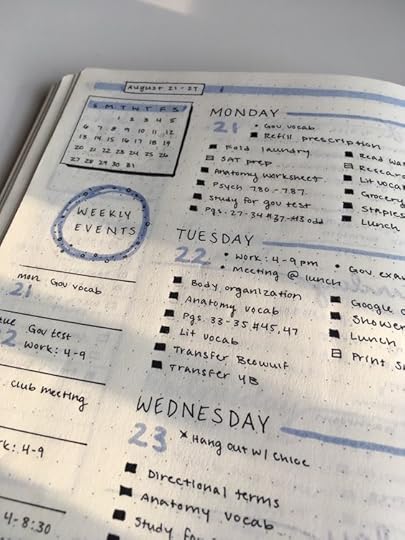 August 21-27
S M T W T F S
1 2 3 4 5
6 7 8 9 10 11 12
13 14 15 16 17 18 19
20 21 22 23 24 25 26
27 28 29 30 31
WEEKLY
EVENTS
mon Gov vocab
21
tue Gov test
work: 4-9
club meeting
4-9
4-8:30
MONDAY
21
• Gov vocab
Refill prescription
Fold laundry
SAT prep
Anatomy worksheet
Psych 780-787
Study for gov test
Pgs. 27-34 #37-#3 odd
Read
Lit vocab
Grocery
Staples
Lunch
TUESDAY
22
• Work: 4-9pm
• meeting @ lunch
• Gov.
Body organization
Anatomy vocab
Pgs. 33-35 #45,47
Lit vocab
Transfer Beowulf
Transfer YB
Google
Shower
Lunch
Print
WEDNESDAY
23
× Hang out w/ Chloe
Directional terms
Anatomy vocab
Study